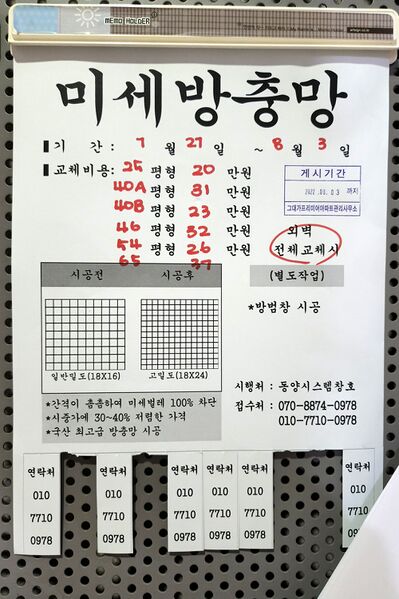 MEMO HOLDER
미세방충망
기 간 : 7 월 27 일 ~ 8 월 3 일
교체비용: 25 평형 20 만원
40A 평형 31 만원
40B 평형 23 만원
46 평형 32 만원
54 평형 26 만원
65 37
게시기간
2022 .08. 03 까지
그대가프리미어아파트관리사무소
외벽
전체교체시
(별도작업)
*방범창 시공
시공전 시공후
일반밀도(18X16) 고밀도(18X24)
*간격이 촘촘하여 미세벌레 100% 차단
*시중가에 30~40% 저렴한 가격
*국산 최고급 방충망 시공
시행처 : 동양시스템창호
접수처 : 070-8874-0978
010-7710-0978
연락처
010
7710
0978
연락처
010
7710
0978
연락처
010
7710
0978
연락처
010
7710
0978
연락처
010
7710
0978
연락처
010
7710
09